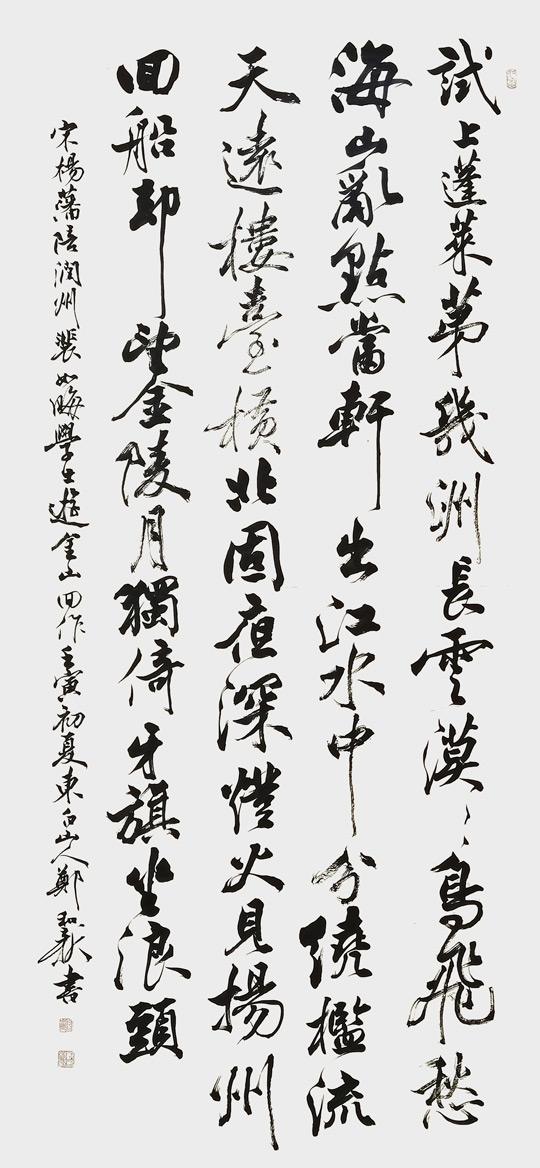 試上蓬萊第幾洲長雲漠々鳥飛愁
海山亂點當軒出江水中分繞檻流
天遠樓臺橫北固夜深燈火見揚州
回船却望金陵月獨倚牙旗坐浪頭
宋楊藩陪潤州裴如晦學士遊金山回作壬寅初夏東白山人鄭和書